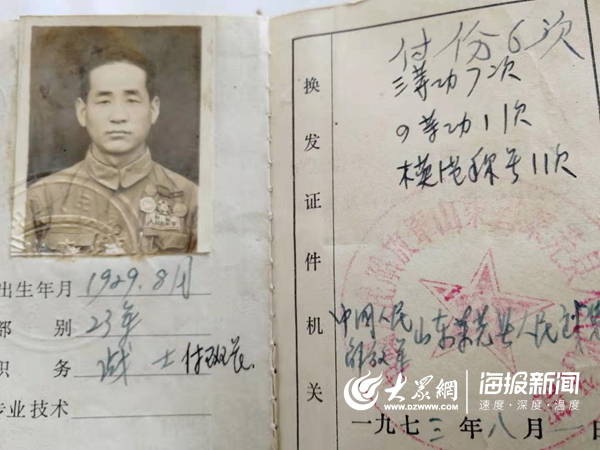 出生年月 1929.8月
部别 23年
职务 战士 付班长
专业技术
付份6次
三等功7次
9等功11次
模范称号11次
换发证件机关
中国人民
解放军
山东莱芜县人民武装
一九七三年八月一日
大众网
www.dzwww.com
海报新闻
速度·深度·温度